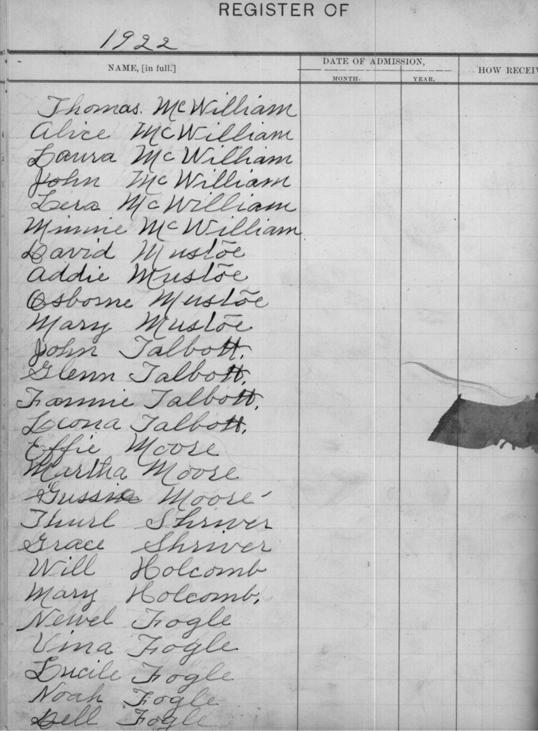 REGISTER OF
1922
NAME, [in full.]
DATE OF ADMISSION,
MONTH.
YEAR.
HOW RECEIV
Thomas. McWilliam
Alice McWilliam
Laura McWilliam
John McWilliam
Lera McWilliam
Minnie McWilliam
David Mustōe
Addie Mustōe
Osborne Mustōe
Mary Mustōe
John Talbott.
Glenn Talbott.
Fannie Talbott.
Leona Talbott.
Effie Moore
Martha Moore
Gussie Moore
Thurl Shriver
Grace Shriver
Will Holcomb
Mary Holcomb.
Newel Fogle
Vina Fogle
Lucile Fogle
Noah Fogle
Dell Fogle